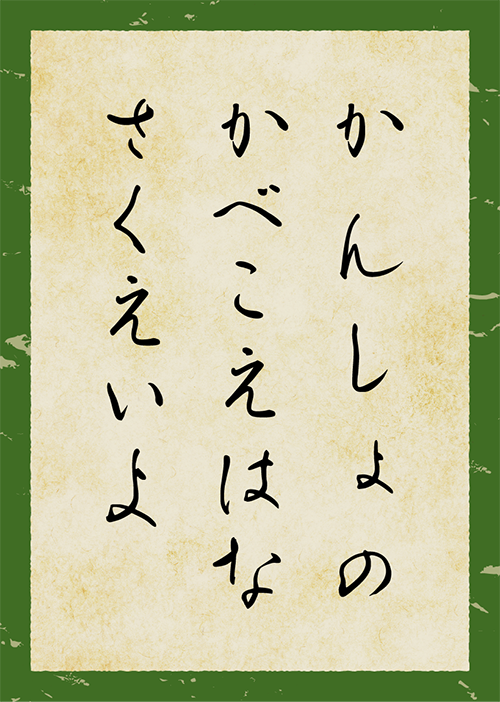 かんしょの
かべこえはな
さくえいよ